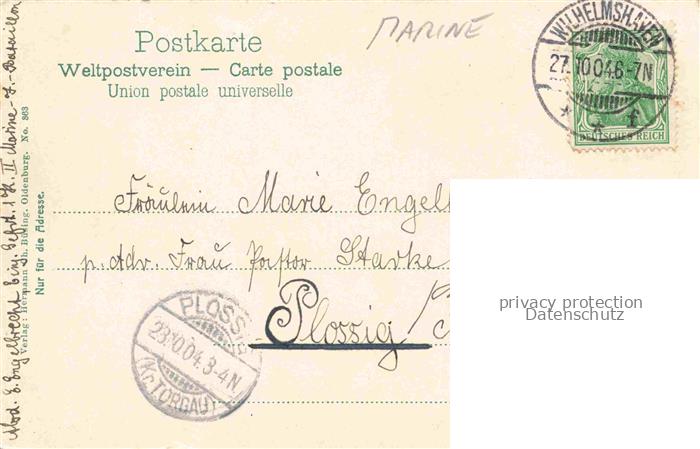 Postkarte
Weltpostverein — Carte postale
Union postale universelle
MARINE
WILHELMSHAVEN
27.10.04.6-7N
* * f
DEUTSCHES REICH
Fräulein Marie Engel
p. Adr. Frau Pastor Starke
Plossig
PLOSSIG
28.10.04.3-4N.
(Kr. TORGAU)
privacy protection
Datenschutz
Nur für die Adresse.
Verlag: Hermann Joh. Büsing, Oldenburg. No. 863
Abs. E. Engelbrecht Einj. Sees. 1 K. II Marine-J.-Bataillon